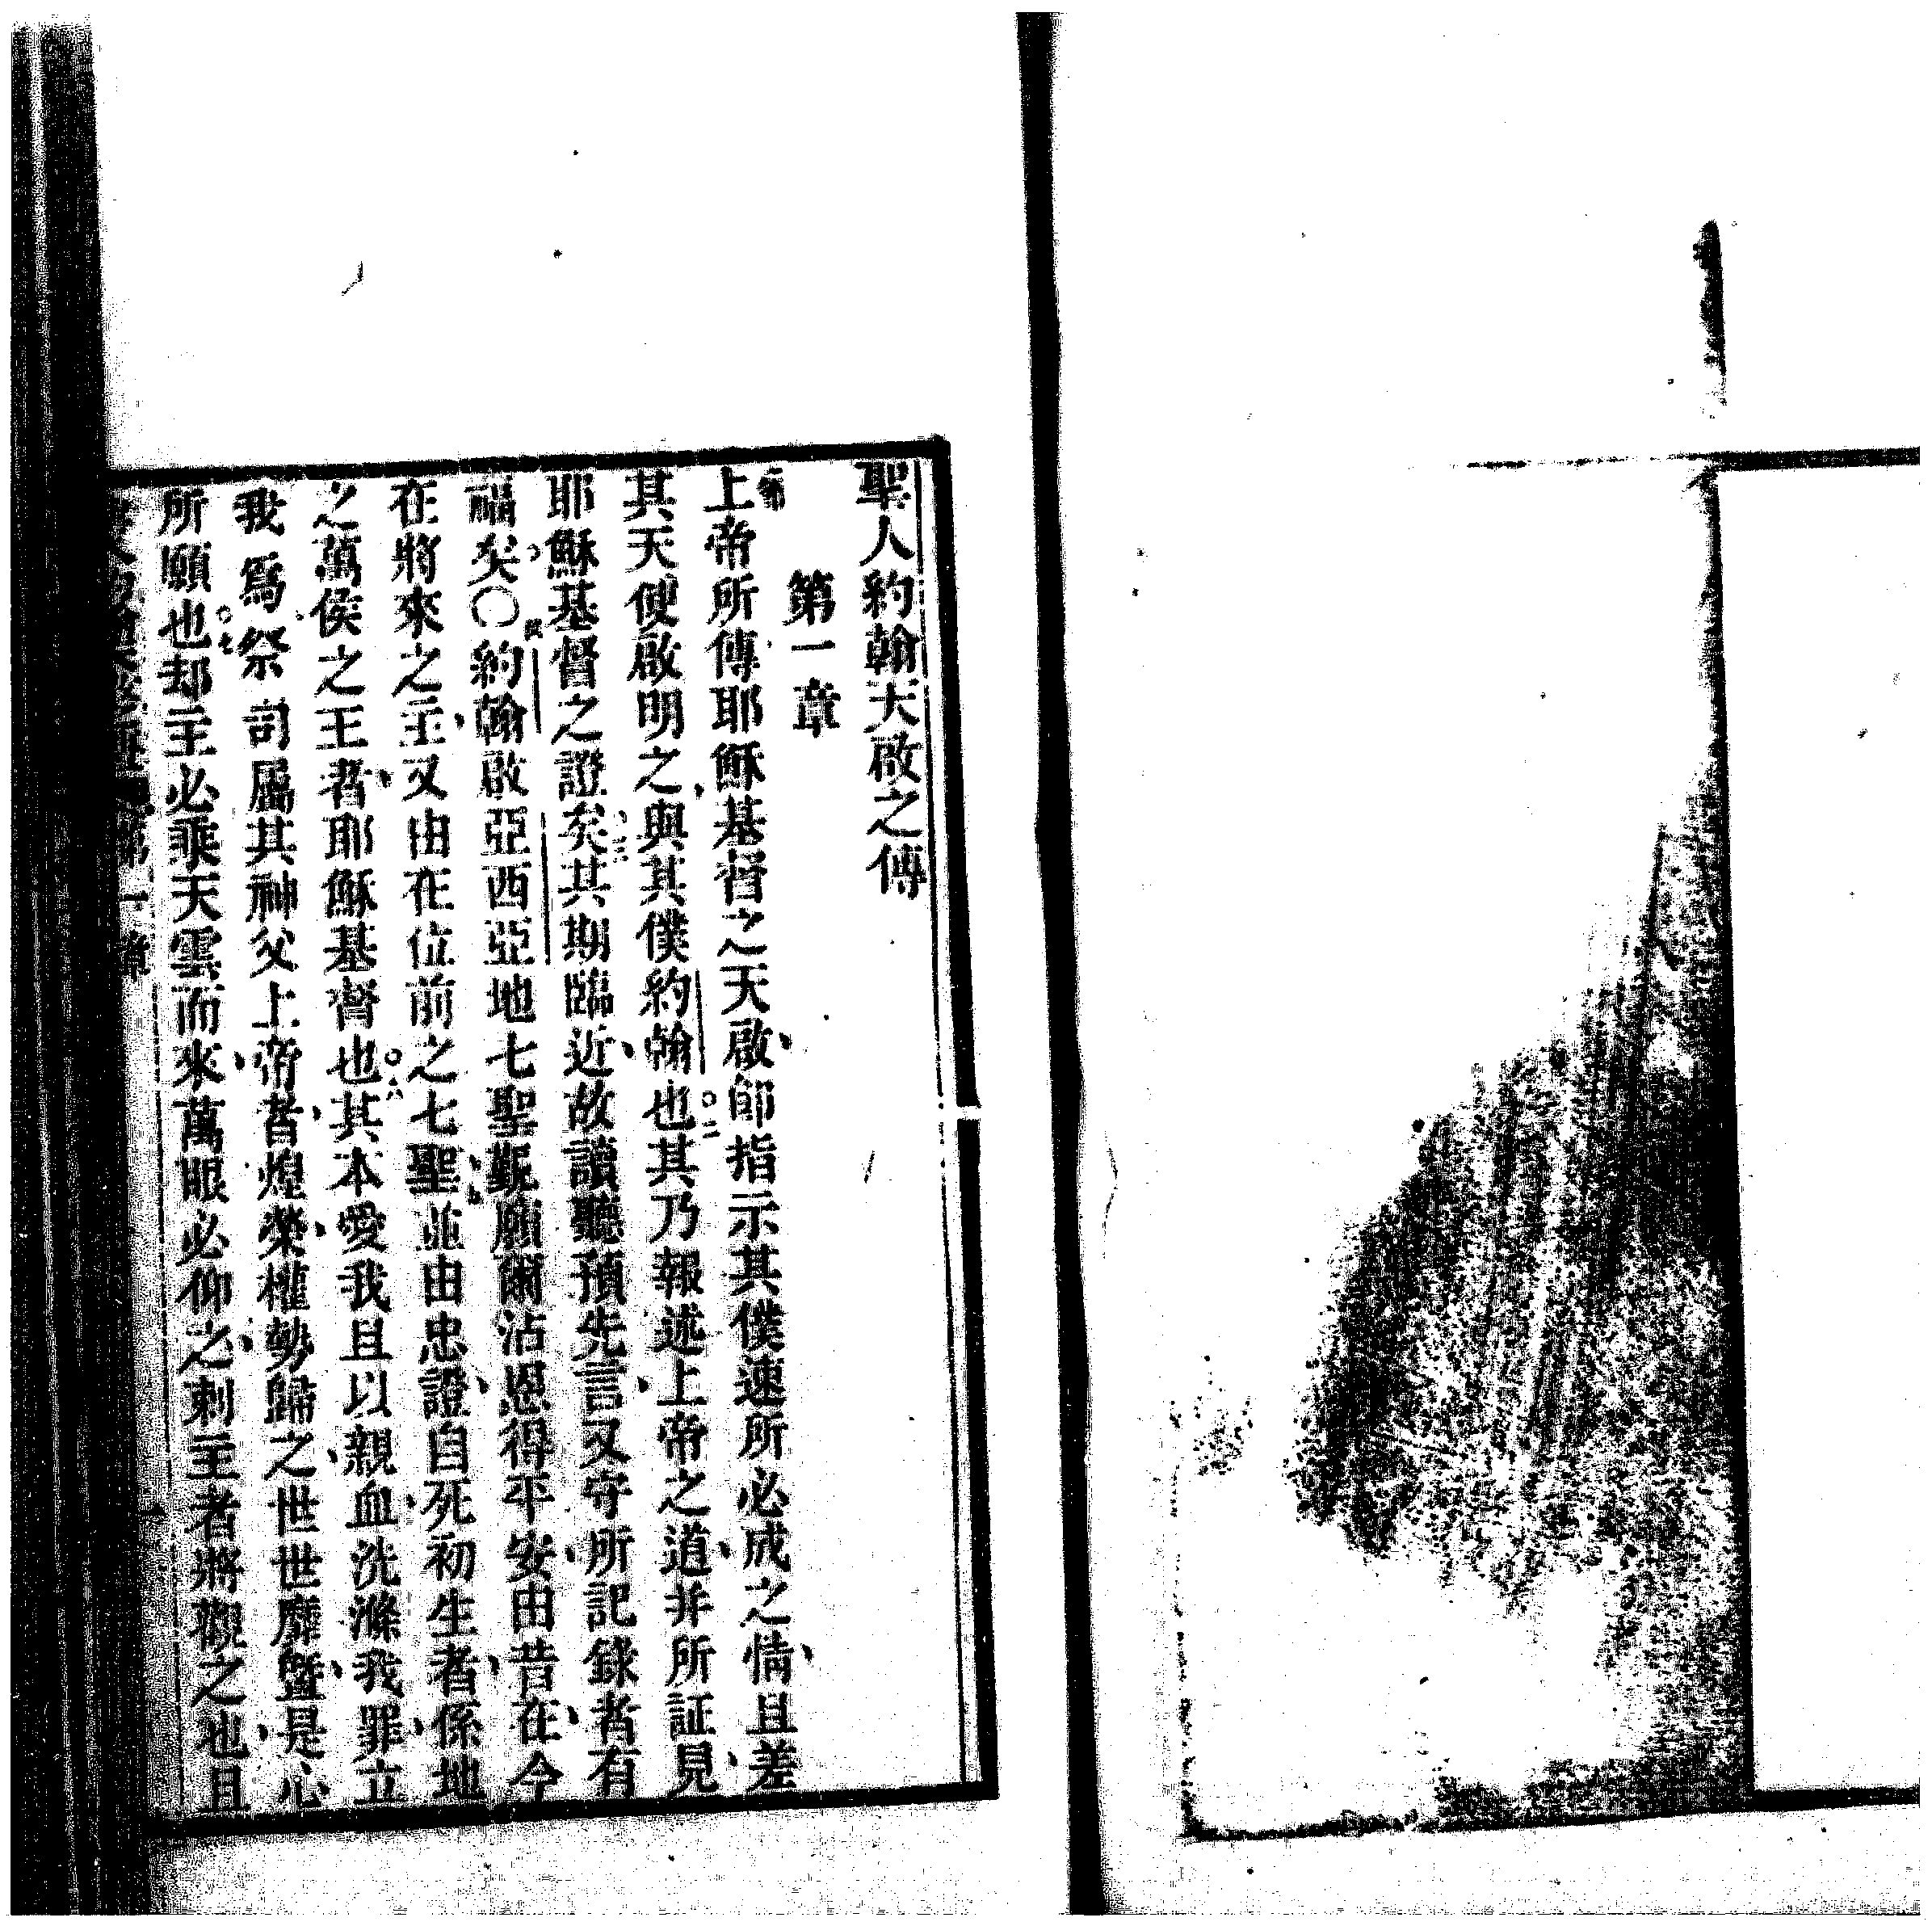 聖人約翰天啟之傳
第一章
上帝所傳耶穌基督之天啟、卽指示其僕速所必成之情、且差
其天使啟明之、與其僕約翰也。二其乃報述上帝之道、并所証見
耶穌基督之證矣、三其期臨近、故讀聽預先言、又守所記錄者有
福矣。〇約翰啟亞西亞地七聖觐、願爾沾恩得平安、由昔在、今
在將來之主、又由在位前之七聖、並由忠證、自死初生者、係地
之萬侯之王者、耶穌基督也。六其本愛我、且以親血洗滌我罪、立
我爲祭司、屬其神父上帝者、煌榮、權勢歸之、世世靡曁、是心
所願也。七却主必乘天雲而來、萬眼必仰之、刺主者將觀之也、且